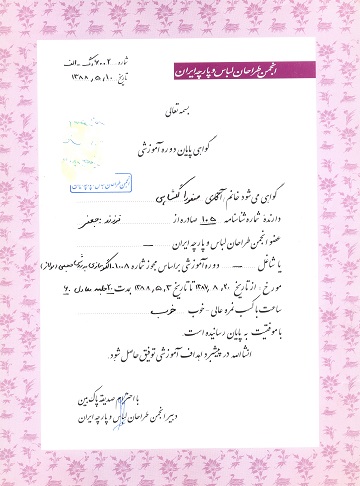 شماره: ۷۰۰۲/گ-الف
تاریخ: ۱۳۸۸,۵,۱۰
انجمن طراحان لباس و پارچه ایران
بسمه تعالی
گواهی پایان دوره آموزشی
انجمن طراحان لباس و پارچه ایران
گواهی می شود خانم / آقای صفدرا گشتاسبی
دارنده شماره شناسنامه ۱۰۵ صادره از فرزند
عضو انجمن طراحان لباس و پارچه ایران —
یا شاغل — دوره آموزشی بر اساس مجوز شماره ۱۰۰۸-الگوسازی
مورخ: از تاریخ ۱۳۸۷,۸,۲۰ تا تاریخ ۱۳۸۸,۵,۳ بمدت ۲۰ جلسه معادل ۶۰
ساعت با کسب نمره عالی - خوب خوب
با موفقیت به پایان رسانیده است.
انشاالله در پیشبرد اهداف آموزشی توفیق حاصل شود.
با احترام صدیقه پاک بین
دبیر انجمن طراحان لباس و پارچه ایران